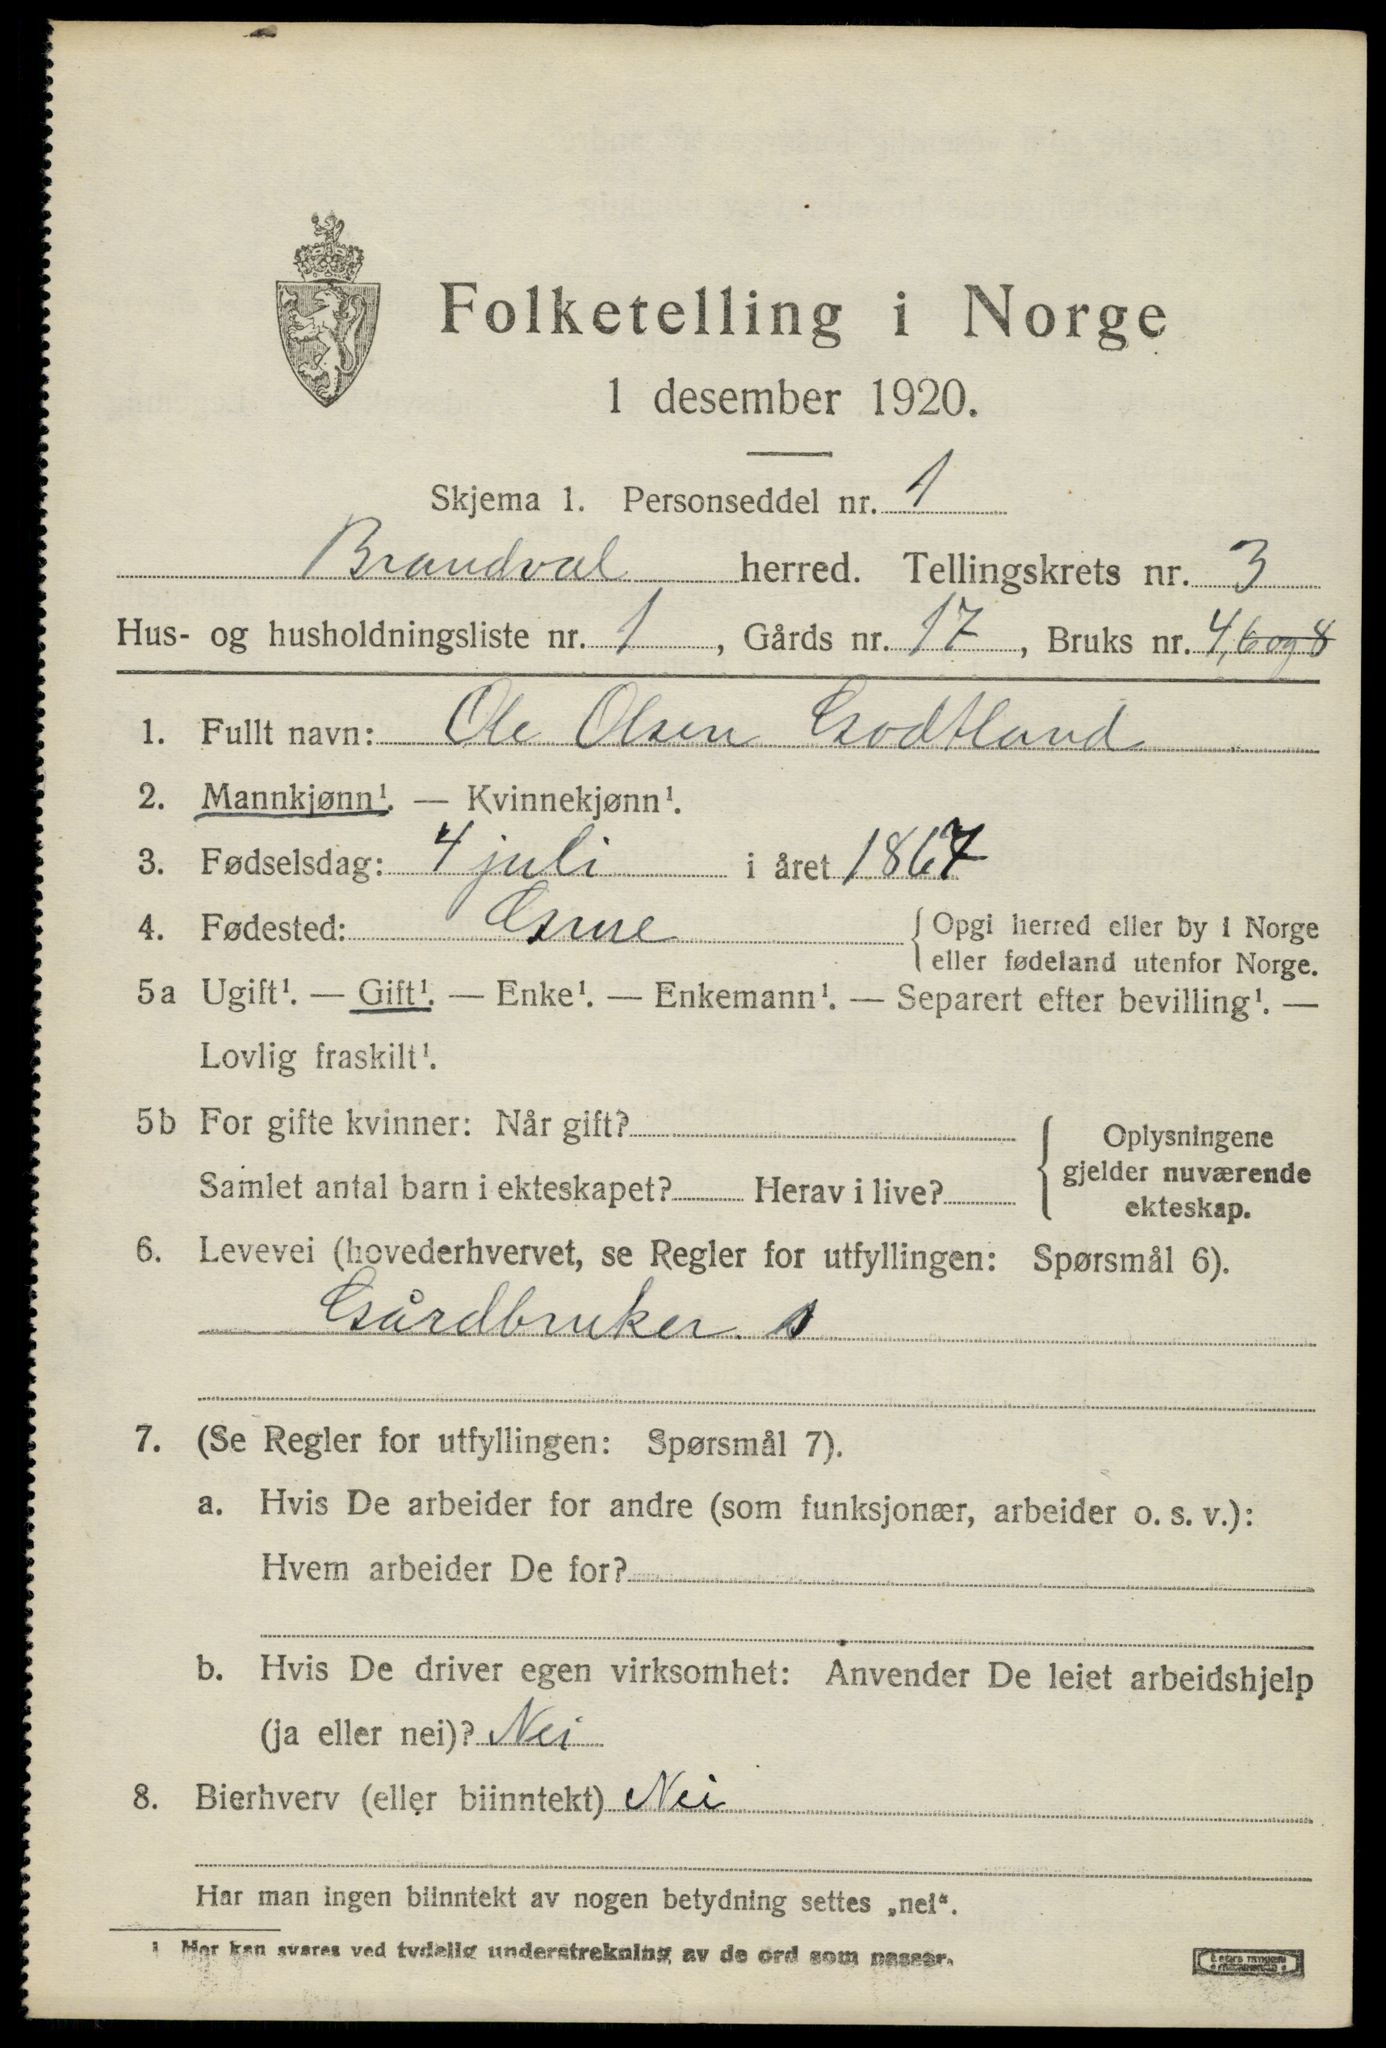 Folketelling i Norge
1 desember 1920.
Skjema 1. Personseddel nr. 1
Brandval herred. Tellingskrets nr. 3
Hus- og husholdningsliste nr. 1, Gårds nr. 17, Bruks nr. 4, 6 og 8
1. Fullt navn: Ole Olsen Godtland
2. Mannkjønn¹. — Kvinnekjønn¹.
3. Fødselsdag: 4 juli i året 1867
4. Fødested: Grue { Opgi herred eller by i Norge
eller fødeland utenfor Norge.
5a Ugift¹. — Gift¹. — Enke¹. — Enkemann¹. — Separert efter bevilling¹. —
Lovlig fraskilt¹.
5b For gifte kvinner: Når gift?
Samlet antal barn i ekteskapet? Herav i live?
Oplysningene
gjelder nuværende
ekteskap.
6. Levevei (hovederhvervet, se Regler for utfyllingen: Spørsmål 6).
Gårdbruker. s
7. (Se Regler for utfyllingen: Spørsmål 7).
a. Hvis De arbeider for andre (som funksjonær, arbeider o. s. v.):
Hvem arbeider De for?
b. Hvis De driver egen virksomhet: Anvender De leiet arbeidshjelp
(ja eller nei)? Nei
8. Bierhverv (eller biinntekt) Nei
Har man ingen biinntekt av nogen betydning settes „nei“.
¹ Her kan svares ved tydelig understrekning av de ord som passer.